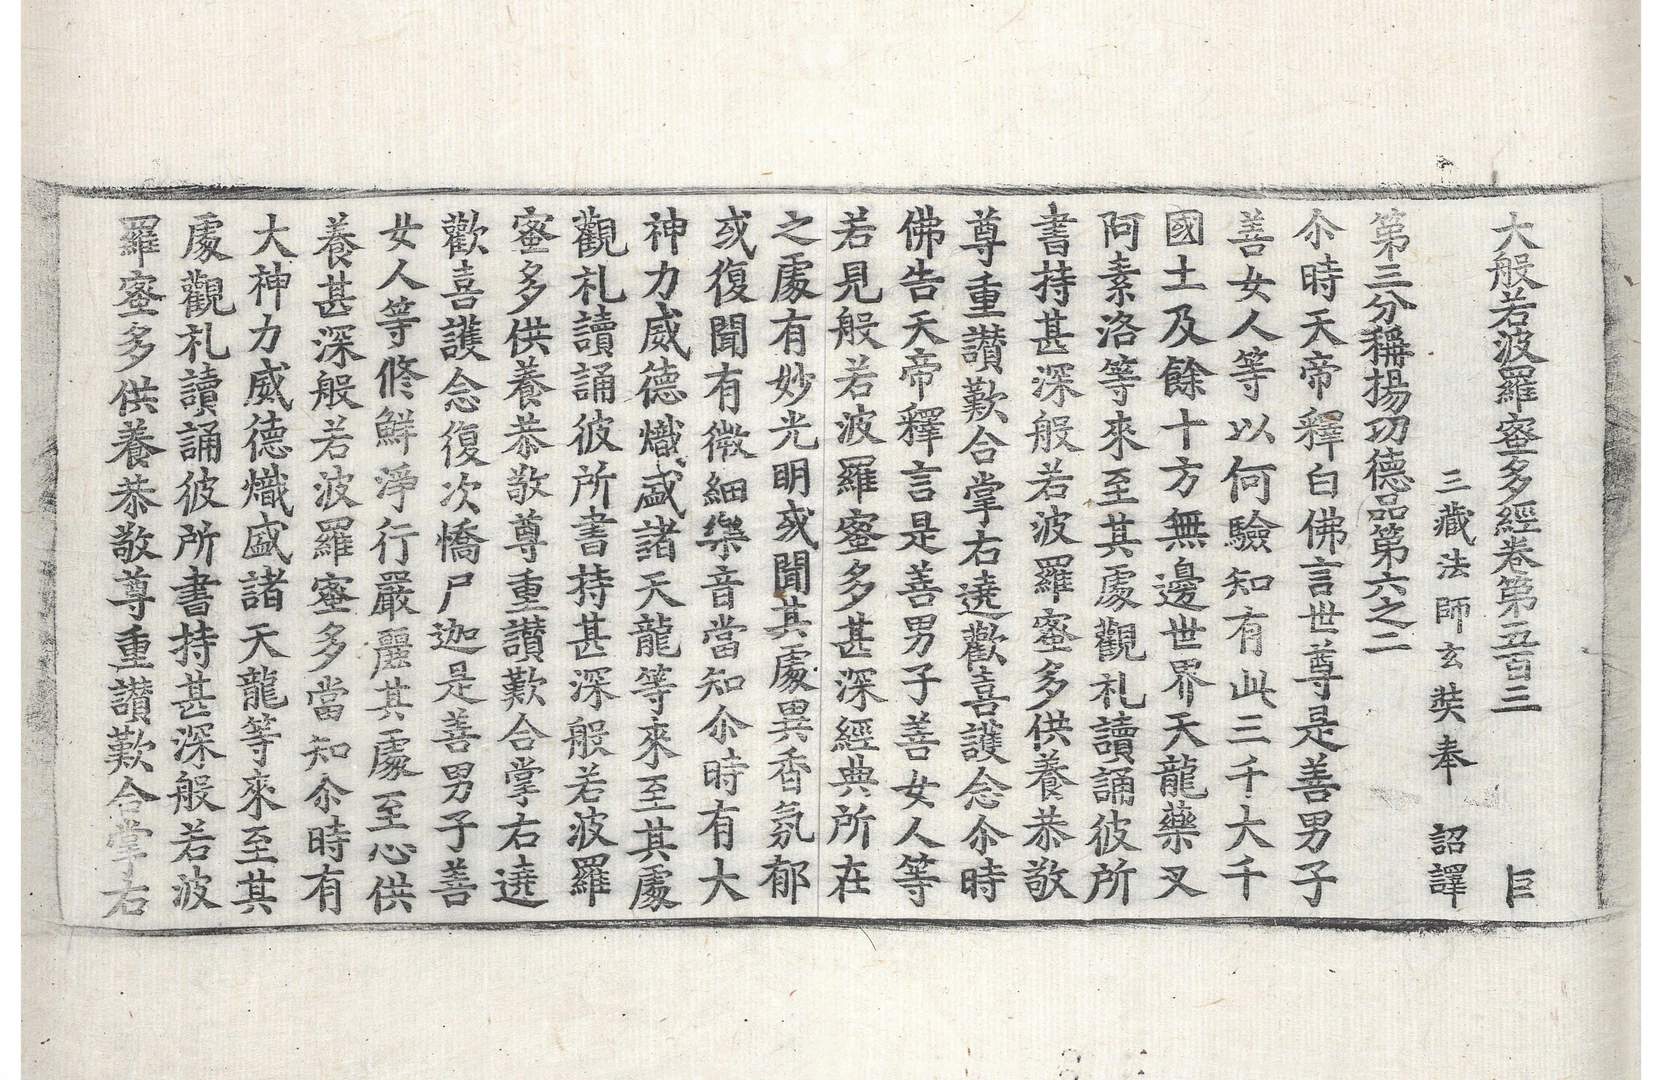 大般若波羅蜜多經卷第五百三　巨
三藏法師玄奘奉　詔譯
第三分稱揚功德品第六之二
尒時天帝釋白佛言世尊是善男子
善女人等以何驗知有此三千大千
國土及餘十方無邊世界天龍藥叉
阿素洛等來至其處觀礼讀誦彼所
書持甚深般若波羅蜜多供養恭敬
尊重讃歎合掌右遶歡喜護念尒時
佛告天帝釋言是善男子善女人等
若見般若波羅蜜多甚深經典所在
之處有妙光明或聞其處異香氛郁
或復聞有微細樂音當知尒時有大
神力威德熾盛諸天龍等來至其處
觀礼讀誦彼所書持甚深般若波羅
蜜多供養恭敬尊重讃歎合掌右遶
歡喜護念復次憍尸迦是善男子善
女人等修鮮淨行嚴麗其處至心供
養甚深般若波羅蜜多當知尒時有
大神力威德熾盛諸天龍等來至其
處觀礼讀誦彼所書持甚深般若波
羅蜜多供養恭敬尊重讃歎合掌右